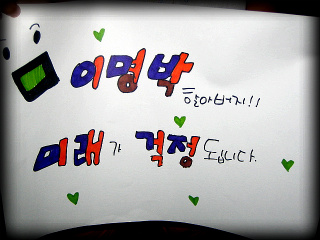 이명박 할아버지!!
미래가 걱정됩니다.